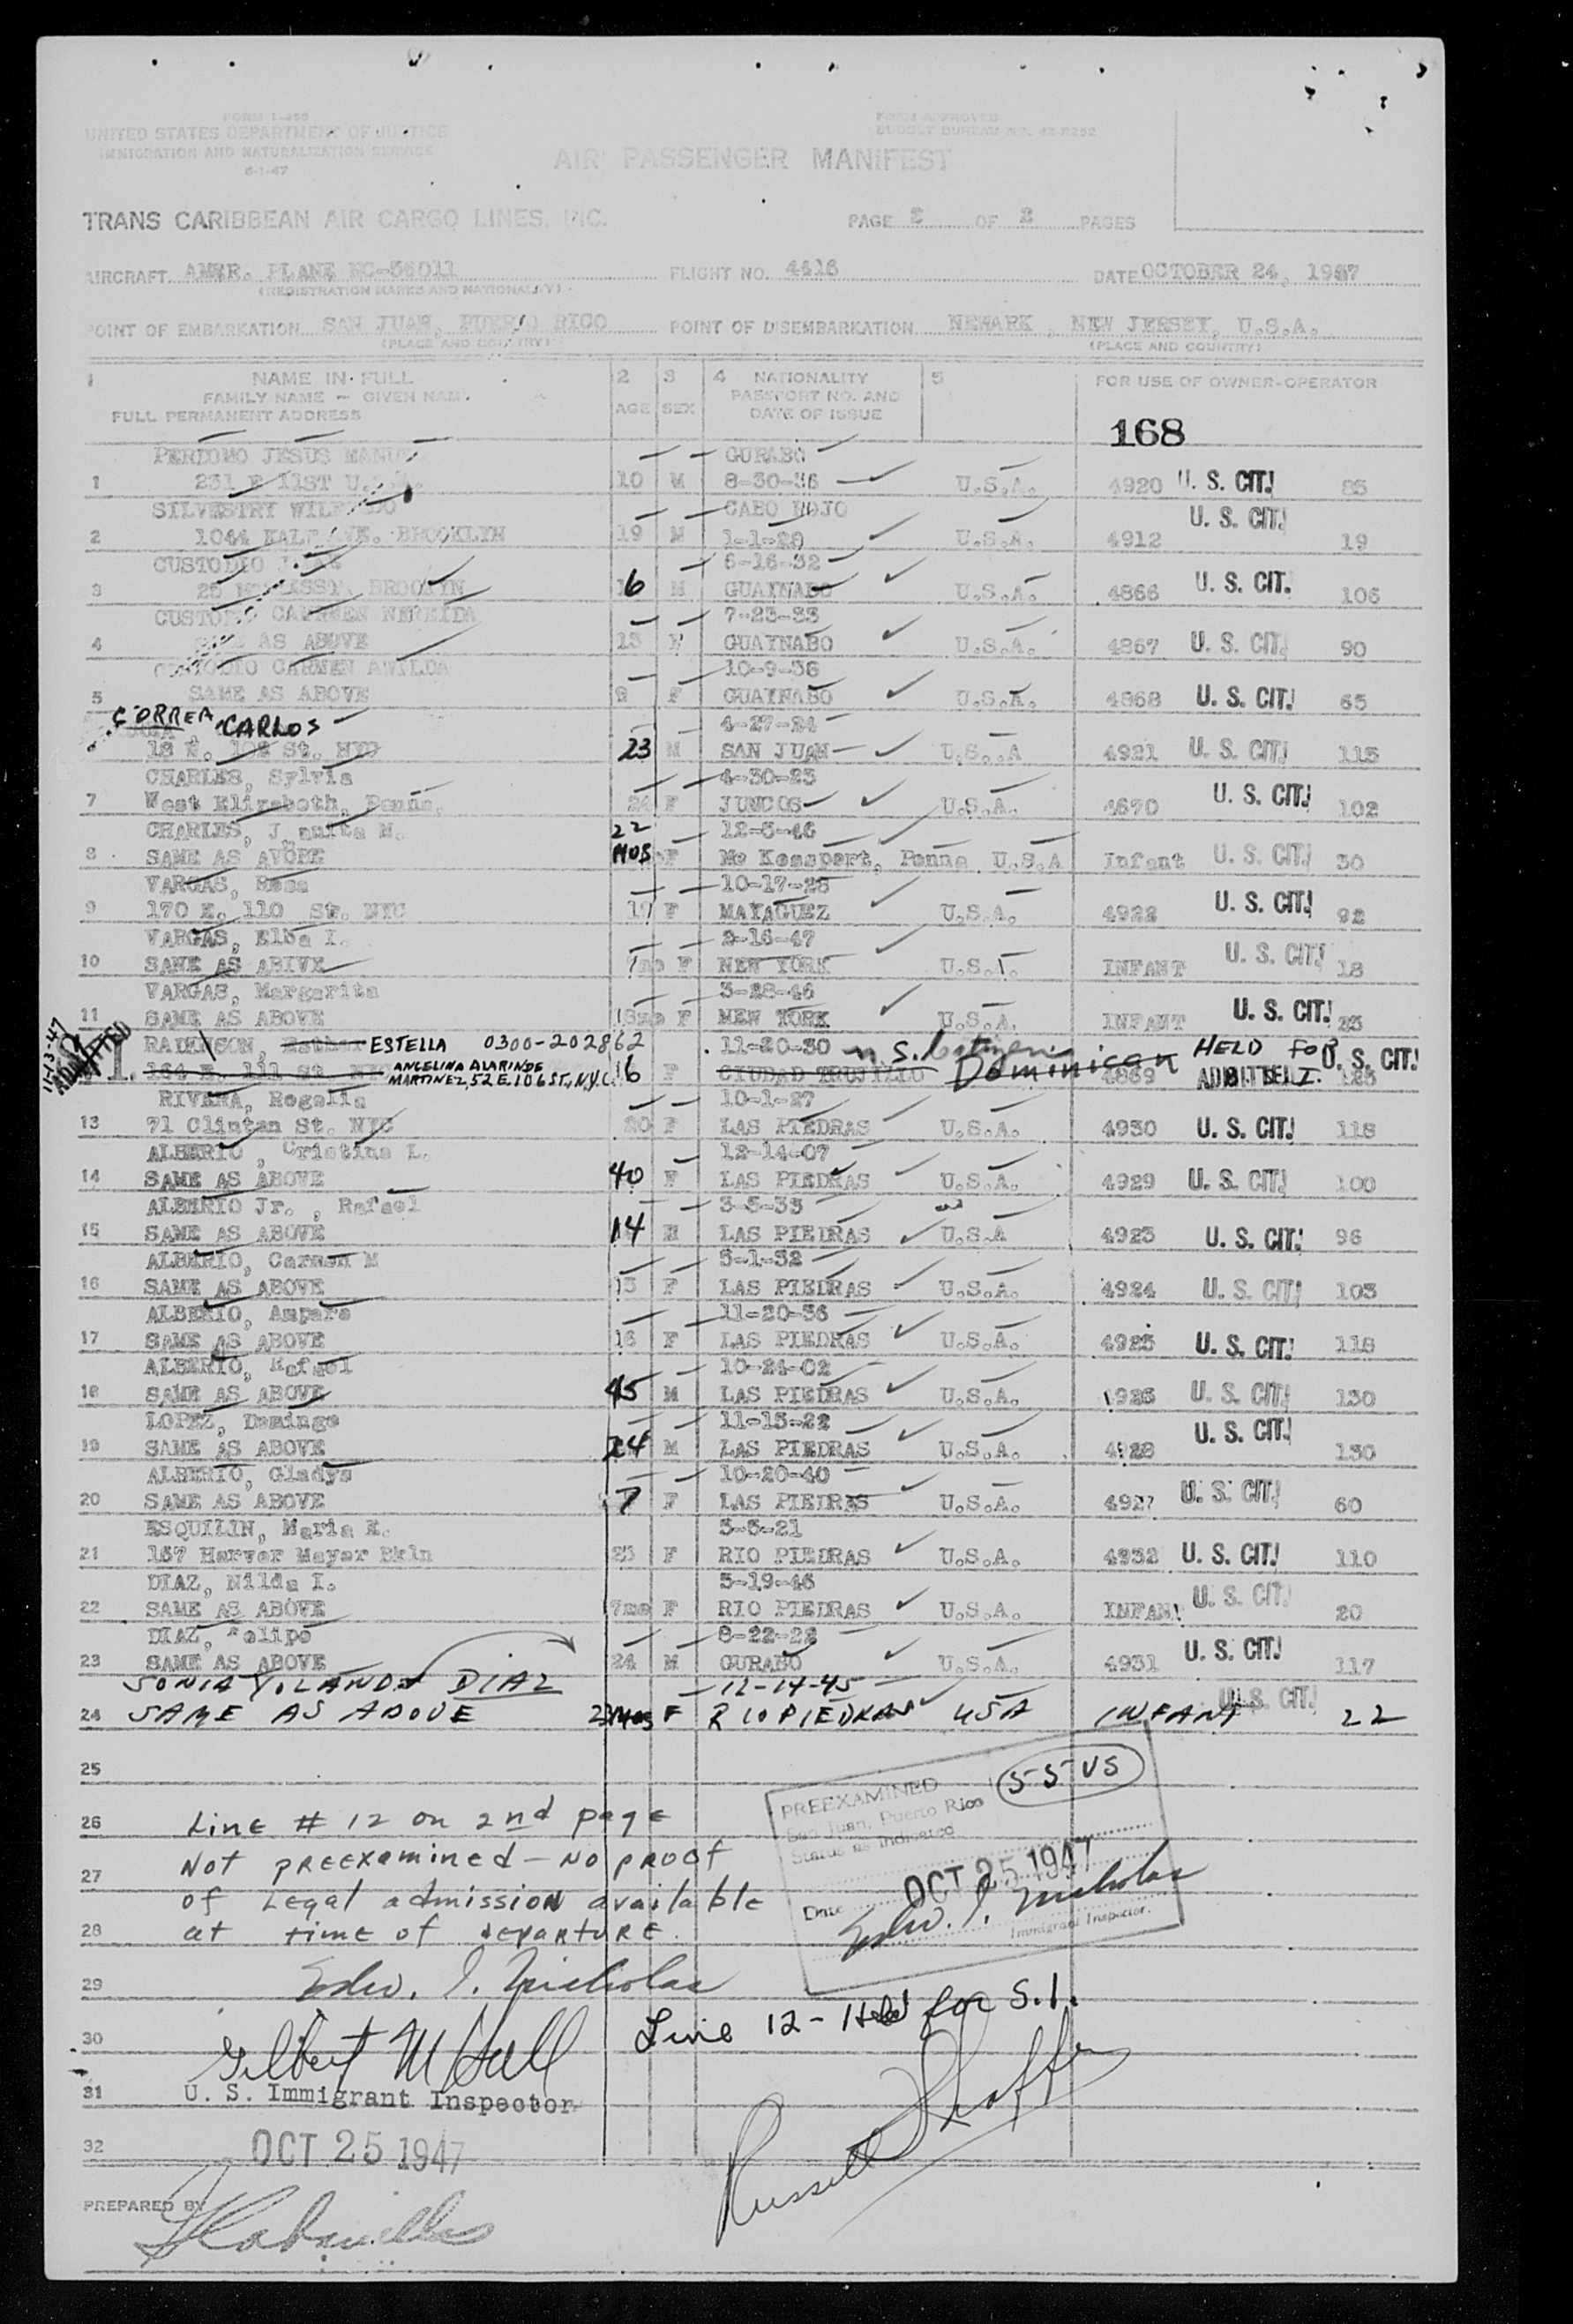 FORM I-466
UNITED STATES DEPARTMENT OF JUSTICE
IMMIGRATION AND NATURALIZATION SERVICE
6-1-47
FORM APPROVED
BUDGET BUREAU NO. 43-R292
AIR PASSENGER MANIFEST
TRANS CARIBBEAN AIR CARGO LINES, INC.
PAGE 2 OF 2 PAGES
AIRCRAFT AMER. PLANE NC-56011 FLIGHT NO. 4416 DATE OCTOBER 24, 1947
(REGISTRATION MARKS AND NATIONALITY)
POINT OF EMBARKATION SAN JUAN, PUERTO RICO POINT OF DISEMBARKATION NEWARK, NEW JERSEY, U.S.A.
(PLACE AND COUNTRY) (PLACE AND COUNTRY)
1 NAME IN FULL 2 3 4 NATIONALITY 5 FOR USE OF OWNER-OPERATOR
FAMILY NAME - GIVEN NAME PASSPORT NO. AND
FULL PERMANENT ADDRESS AGE SEX DATE OF ISSUE
168
PERDOMO JESUS GURABO
1 231 E 11ST 10 M 8-30-36 U.S.A. 4920 U. S. CIT. 85
SILVESTRY CABO ROJO
2 1044 BROOKLYN 19 M 1-1-28 U.S.A. 4912 U. S. CIT. 19
CUSTODIO 6-16-32
3 25 BROOKYN 6 M GUAYNABO U.S.A. 4866 U. S. CIT. 106
CARMEN NEREIDA 7-23-33
4 AS ABOVE 13 F GUAYNABO U.S.A. 4867 U. S. CIT. 90
CUSTODIO CARMEN AWILDA 10-9-36
5 SAME AS ABOVE 9 F GUAYNABO U.S.A. 4868 U. S. CIT. 65
CORREA, CARLOS 4-27-24
18 E. 102 St. NYC 23 M SAN JUAN U.S.A 4921 U. S. CIT. 115
CHARLES, Sylvia 4-30-23
7 West Elizabeth, Penna. 24 F JUNCOS U.S.A. 4870 U. S. CIT. 102
CHARLES, Juanita M. 22 12-5-46
8 SAME AS AVOBE MOS F Mc Keesport, Penna U.S.A Infant U. S. CIT. 30
VARGAS, Rosa 10-17-28
9 170 E. 110 St. NYC 19 F MAYAGUEZ U.S.A. 4922 U. S. CIT. 92
VARGAS, Elba I. 2-16-47
10 SAME AS ABIVE 7mo F NEW YORK U.S.A. INFANT U. S. CIT. 18
VARGAS, Margarita 3-28-46
11 SAME AS ABOVE 18mo F MEW YORK U.S.A. INFANT U. S. CIT. 23
11-13-47 ADMITTED
RADENSON, Esther ESTELLA 0300-202862 11-20-30 HELD FOR U. S. CIT.
164 E. 111 St ANGELINA ALARINDE 16 F CIUDAD TRUJILLO Dominican 4869 ADMITTED S.I. 125
MARTINEZ, 52 E. 106 ST., N.Y.C.
RIVERA, Rogelia 10-1-27
13 71 Clinton St. NYC 20 F LAS PIEDRAS U.S.A. 4930 U. S. CIT. 118
ALBERIO, Cristina L. 12-14-07
14 SAME AS ABOVE 40 F LAS PIEDRAS U.S.A. 4929 U. S. CIT. 100
ALBERIO Jr., Rafael 3-5-33
15 SAME AS ABOVE 14 M LAS PIEDRAS U.S.A 4923 U. S. CIT. 96
ALBERIO, Carmen M 5-1-32
16 SAME AS ABOVE 15 F LAS PIEDRAS U.S.A. 4924 U. S. CIT. 103
ALBERIO, Amparo 11-20-36
17 SAME AS ABOVE 16 F LAS PIEDRAS U.S.A. 4925 U. S. CIT. 118
ALBERIO, Rafael 10-24-02
18 SAME AS ABOVE 45 M LAS PIEDRAS U.S.A. 4926 U. S. CIT. 130
LOPEZ, Domingo 11-15-22
19 SAME AS ABOVE 24 M LAS PIEDRAS U.S.A. 4928 U. S. CIT. 130
ALBERIO, Gladys 10-20-40
20 SAME AS ABOVE 7 F LAS PIEDRAS U.S.A. 4927 U. S. CIT. 60
ESQUILIN, Maria E. 5-5-21
21 157 Harver Meyer Bkln 25 F RIO PIEDRAS U.S.A. 4932 U. S. CIT. 110
DIAZ, Nilda I. 5-19-46
22 SAME AS ABOVE 7mo F RIO PIEDRAS U.S.A. INFANT U. S. CIT. 20
DIAZ, Felipe 8-22-22
23 SAME AS ABOVE 24 M GURABO U.S.A. 4931 U. S. CIT. 117
SONIA YOLANDA DIAZ 12-14-45
24 SAME AS ABOVE 22 Mos F RIO PIEDRAS USA INFANT U. S. CIT. 22
25
26 Line # 12 on 2nd page
27 Not preexamined - No proof
of Legal admission available
28 at time of departure
29 Edw. J. Nicholas
PREEXAMINED 5-5-US
San Juan, Puerto Rico
Status as indicated
Date OCT 25 1947
Edw. J. Nicholas
Immigrant Inspector.
Line 12 - Held for S.I.
30 Gilbert M Hull
31 U. S. Immigrant Inspector
Russell Shaffer
32 OCT 25 1947
PREPARED BY